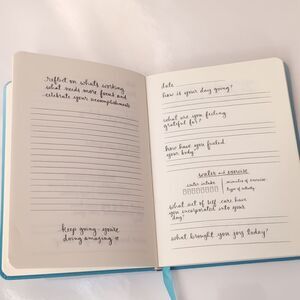 reflect on whats working,
what needs more focus and
celebrate your accomplishments
keep going you're
doing amazing
date
how is your day going?
what are you feeling
grateful for?
how have you fueled
your body?
water and exercise
water intake
minutes of exercise
type of activity
what act of self-care have
you incorporated into your
day?
what brought you joy today?